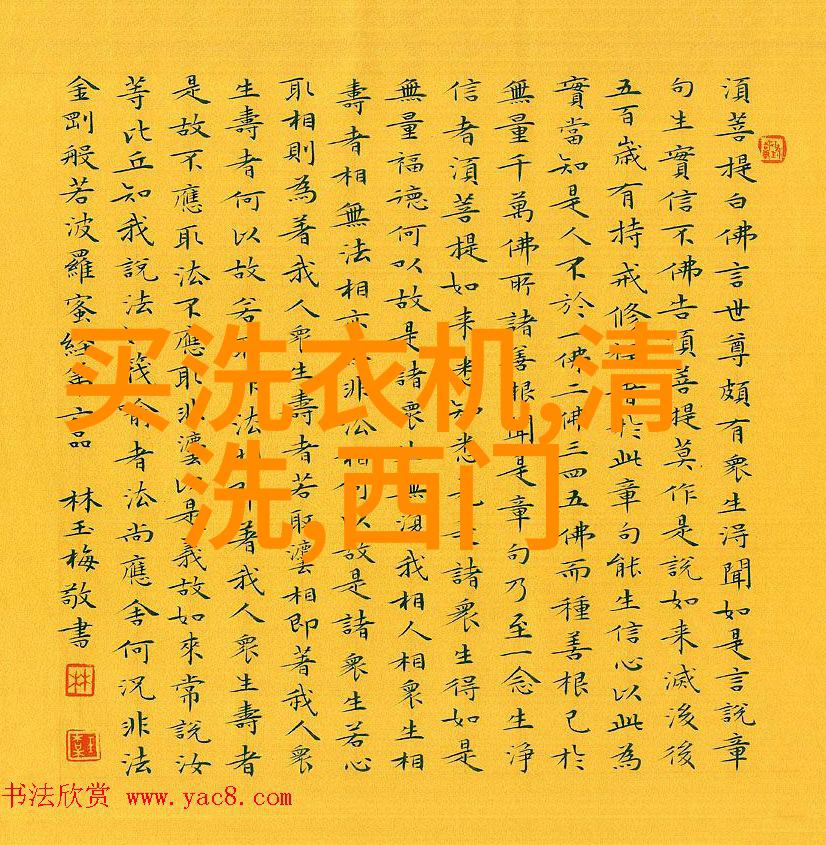 須菩提白佛言世尊頗有衆生淂聞如是言說章
句生實信不佛告須菩提莫作是說如来滅後後
五百歲有持戒修行者於此章句能生信心以此為
實當知是人不於一佛二佛三四五佛而種善根已於
無量千萬佛所諸善根聞是章句乃至一念生淨
信者須菩提如来悉知悉諸衆生得如是
無量福德何以故是諸衆無我相人相衆生相
壽者相無法相亦非法相何以故是諸衆生若心
取相則為著我人衆生壽者若取灋相即著我人衆
生壽者何以故若非法相即著我人衆生壽者
是故不應取法不應取非灋以是義故如來常說汝
等比丘知我說法筏喻者法尚應舍何況非法
金剛般若波羅蜜經第六品 林玉梅敬書
林
买洗衣机,清
洗,西门
书法欣赏 www.yac8.com